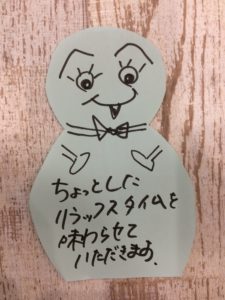 ちょっとした
リラックスタイムを
味わらせて
いただきます。